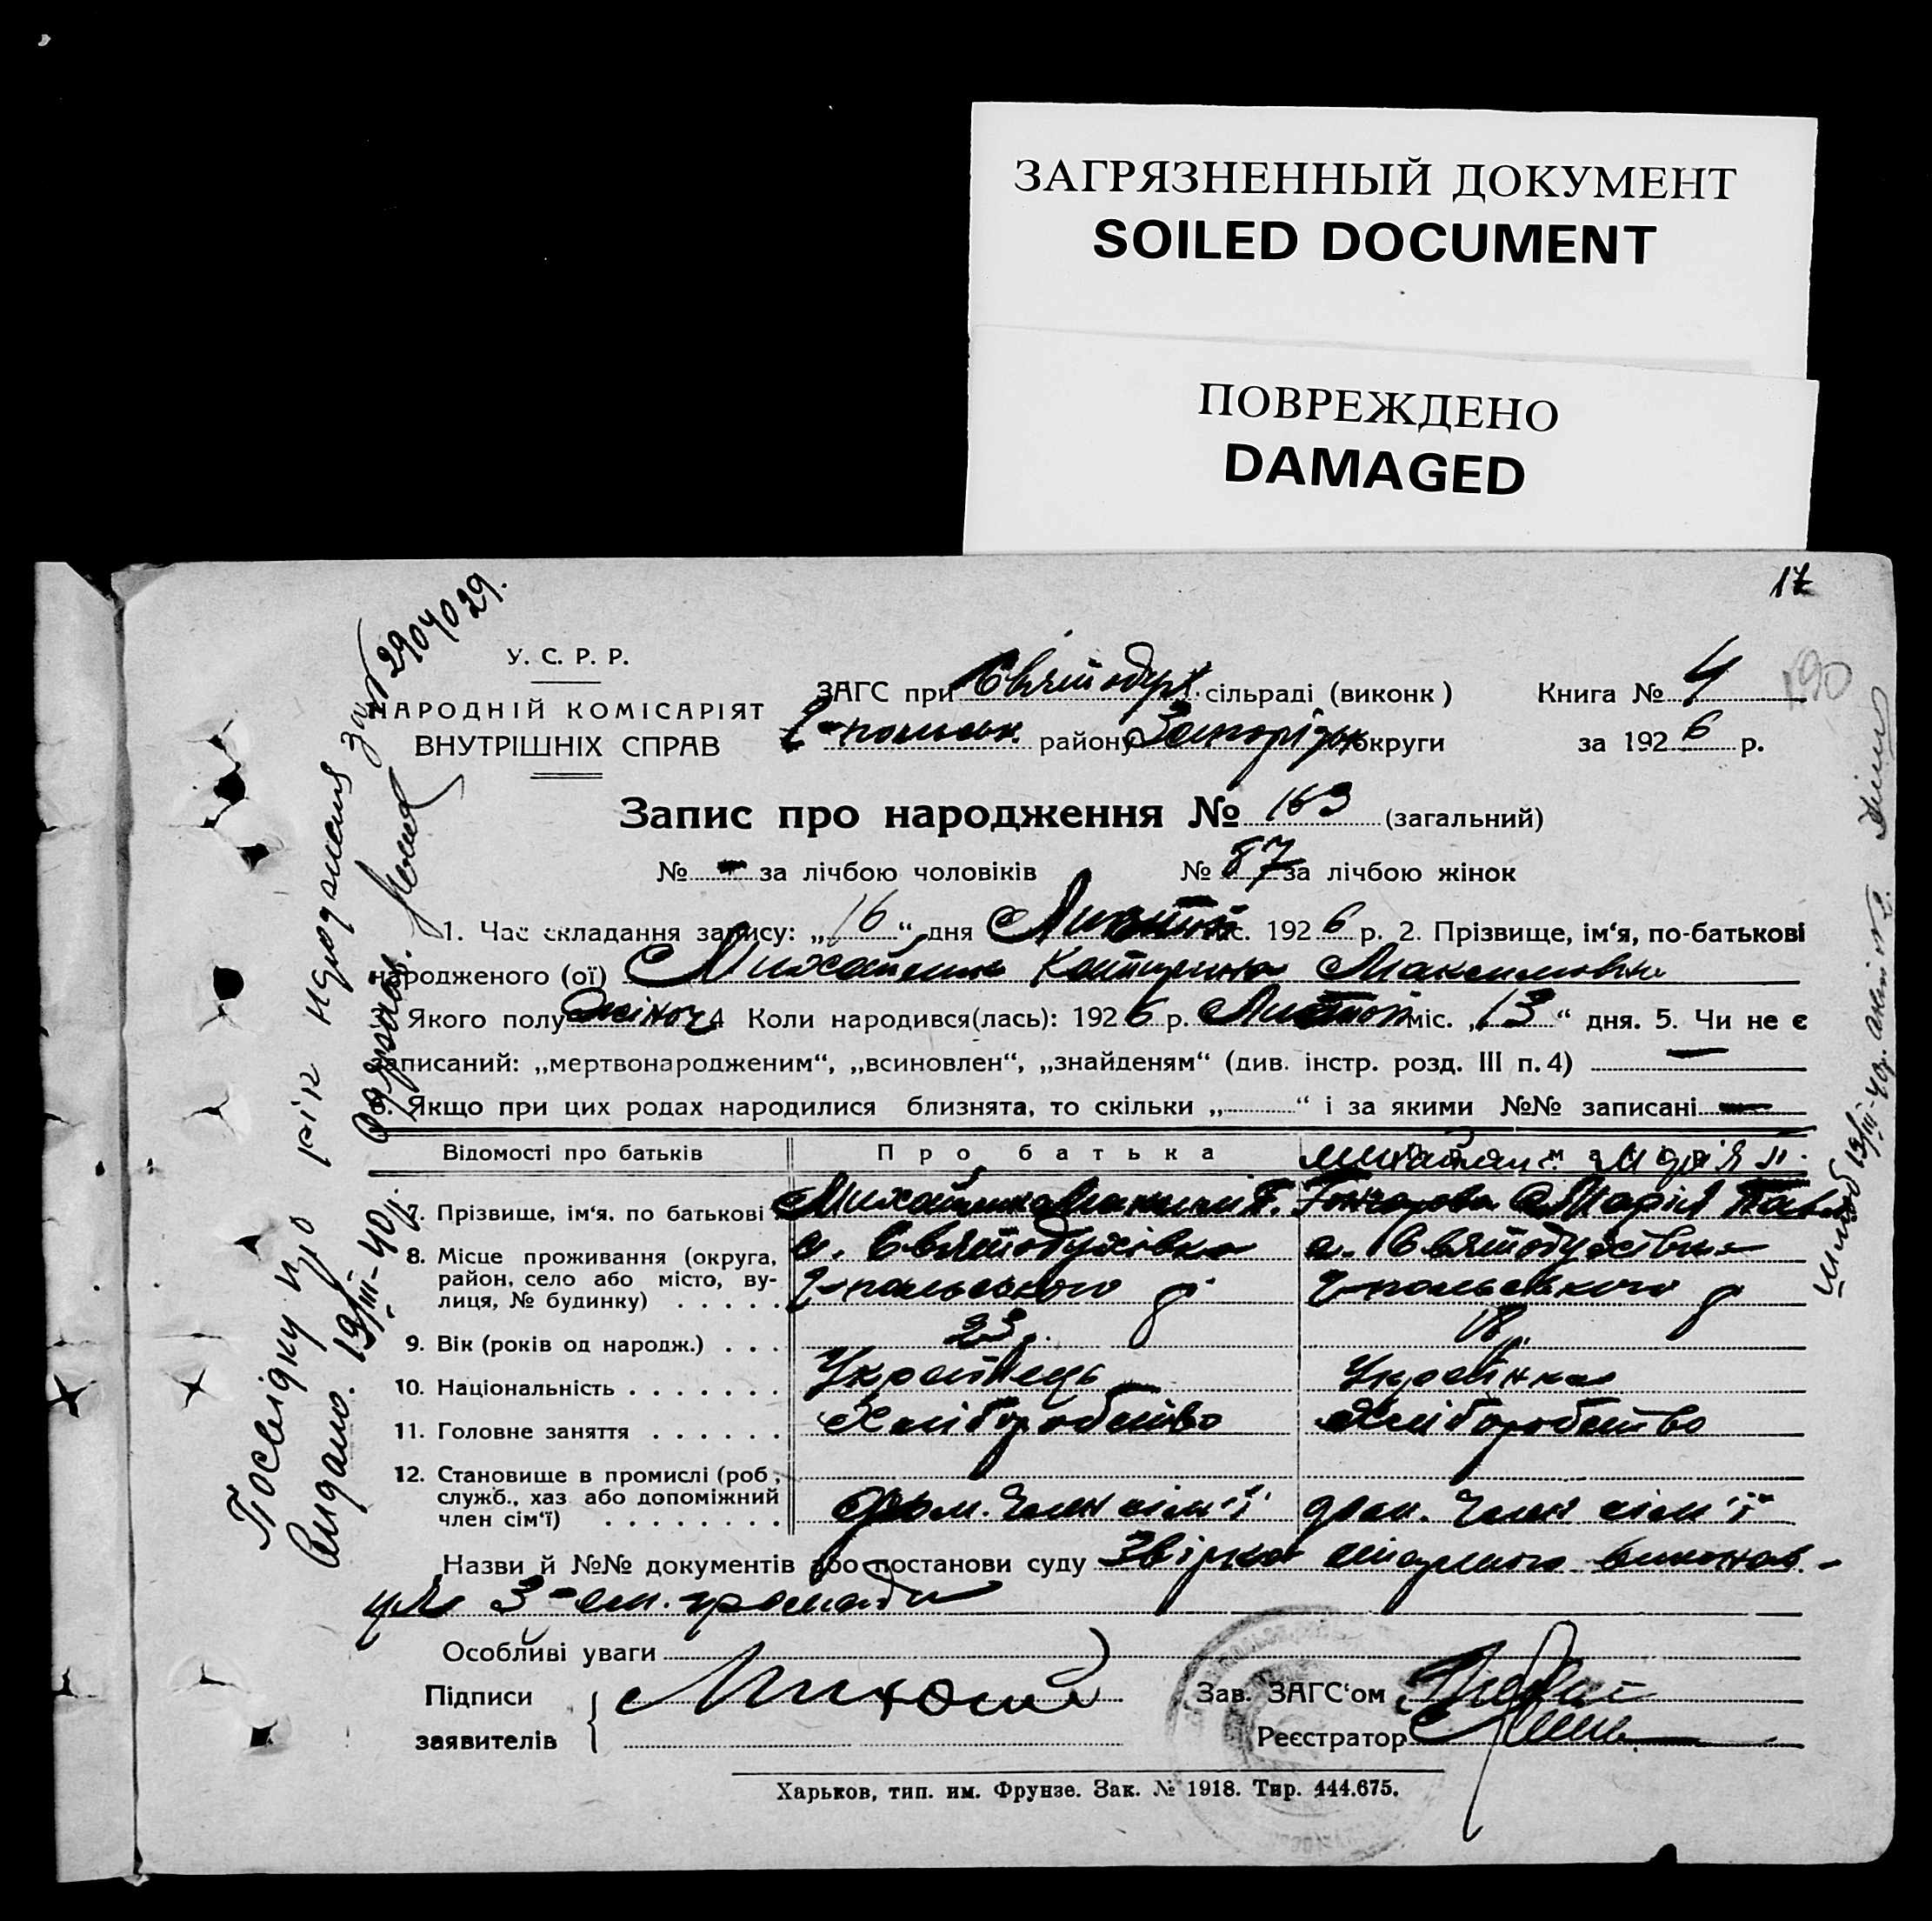 ЗАГРЯЗНЕННЫЙ ДОКУМЕНТ
SOILED DOCUMENT
ПОВРЕЖДЕНО
DAMAGED
17
190
У. С. Р. Р.
НАРОДНІЙ КОМІСАРІЯТ
ВНУТРІШНІХ СПРАВ
ЗАГС при Святодух. сільраді (виконк)
Книга № 4
району Запорізьк округи
за 1926 р.
Запис про народження № 163 (загальний)
№ - за лічбою чоловіків № 87 за лічбою жінок
1. Час складання запису: „16“ дня 1926 р. 2. Прізвище, ім‘я, по-батькові
народженого (ої) Михайленко Катерина Максимовна
Якого полу жіноч. 4 Коли народився(лась): 1926 р. міс. „13“ дня. 5. Чи не є
записаний: „мертвонародженим“, „всиновлен“, „знайденям“ (див. інстр. розд. III п. 4) —
6. Якщо при цих родах народилися близнята, то скільки „ “ і за якими №№ записані —
Відомості про батьків
Про батька
7. Прізвище, ім‘я, по батькові
Михайленко Максим Т.
Гончарова Марія Павл
8. Місце проживання (округа, район, село або місто, ву-лиця, № будинку) . . . . .
с. Святодухівка
с. Святодухівка
-польського р
-польського р
9. Вік (років од народж.) . . .
23 р.
18 р.
10. Національність . . . . . . .
Українець
Українка
11. Головне заняття . . . . . .
Хліборобство
Хліборобство
12. Становище в промислі (роб., служб., хаз або допоміжний член сім‘ї) . . . . . . . .
доп. член сім'ї
доп. член сім'ї
Назви й №№ документів або постанови суду Звірка виконав-
ця 3 громади
Особливі уваги
Підписи
заявителів
Зав. ЗАГС‘ом
Реєстратор
Харьков, тип. им. Фрунзе. Зак. № 1918. Тир. 444.675.
Посвідку про рік народження
видано. 19/III-40 р.
Шлюб 19/III-40р. акт №